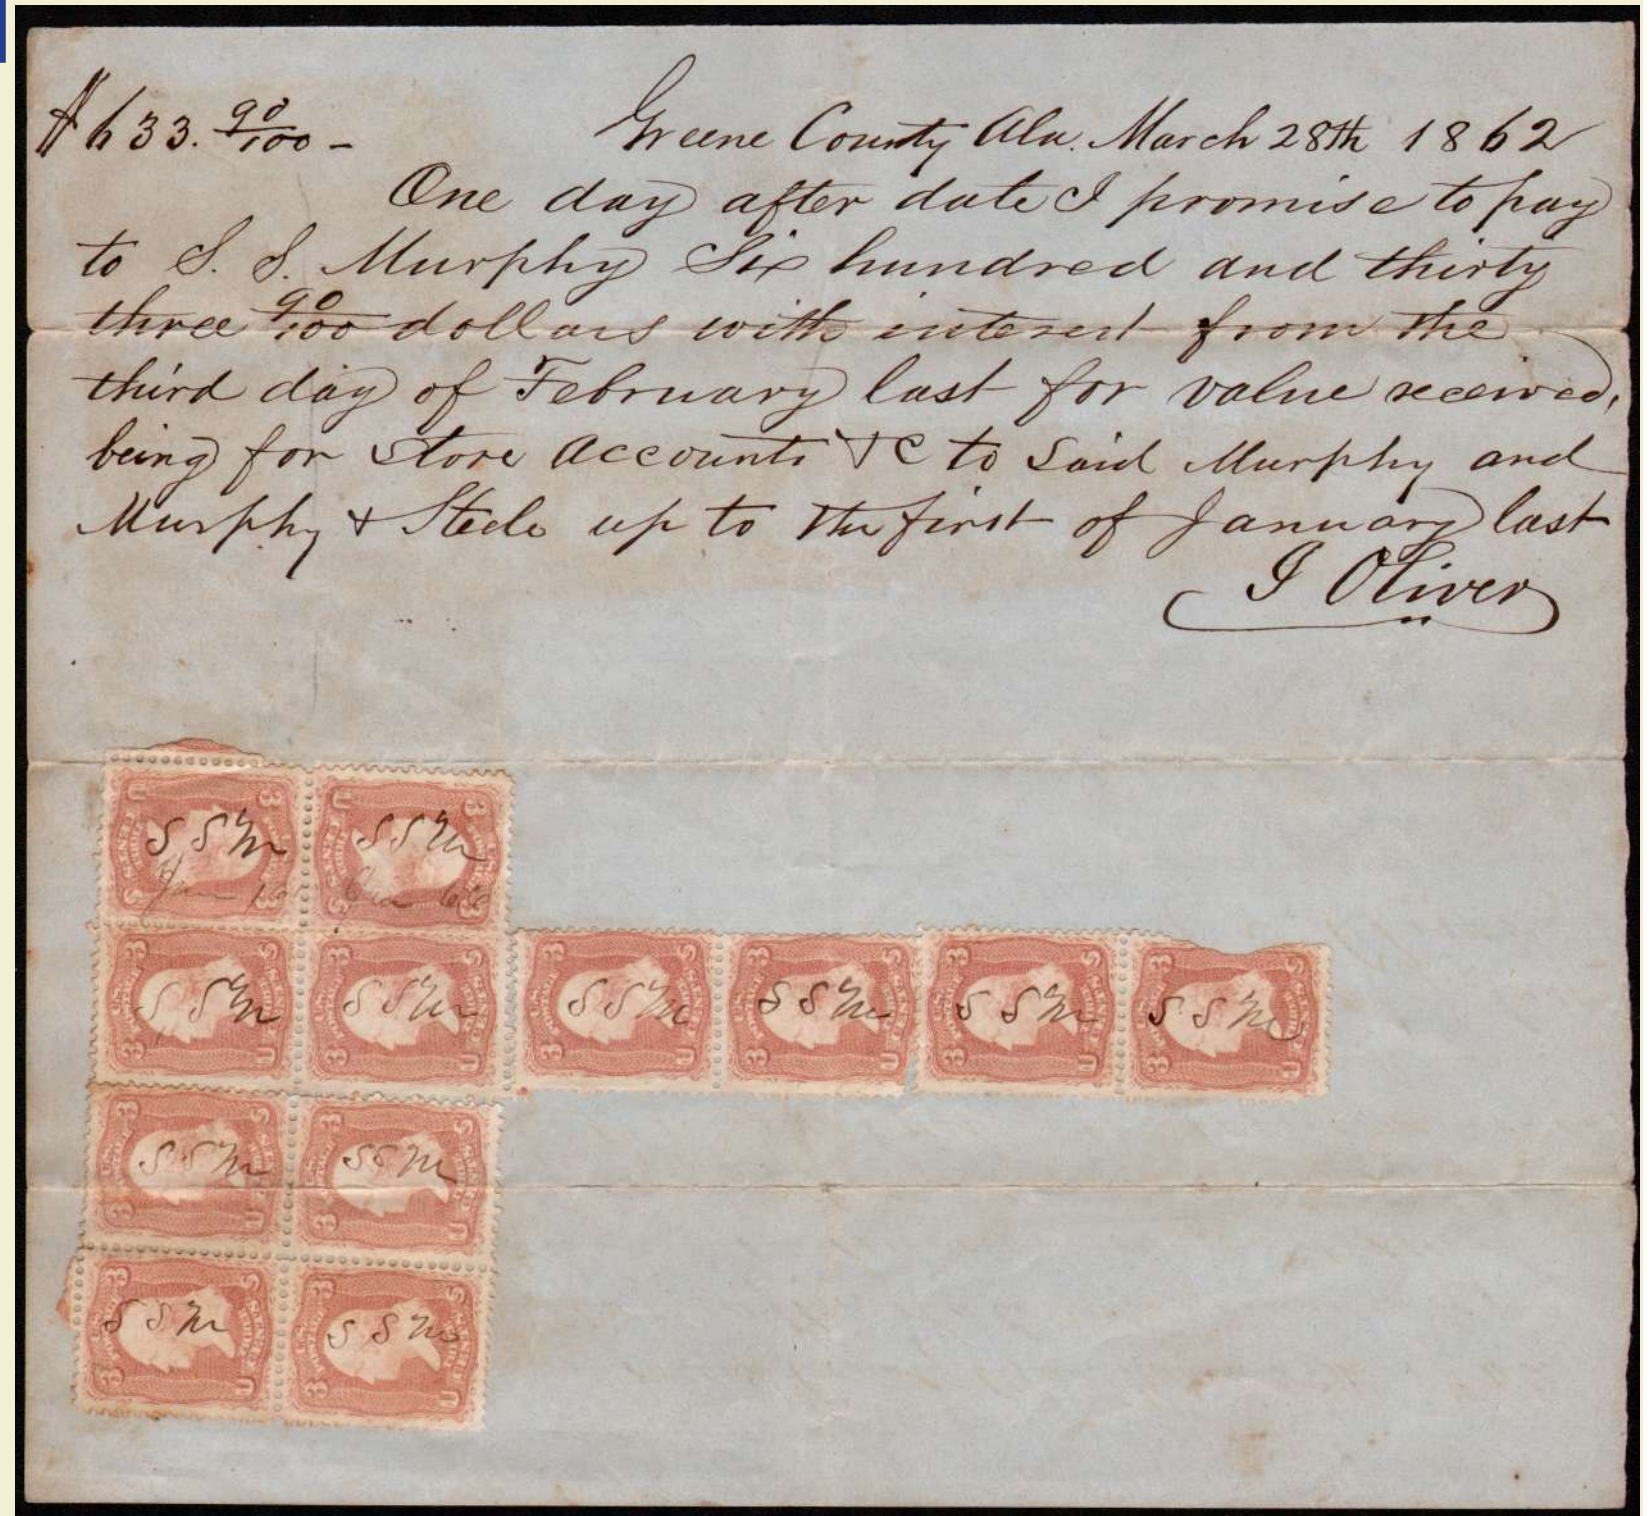 $633.90/100 -
Greene County Ala. March 28th 1862
One day after date I promise to pay
to S. S. Murphy Six hundred and thirty
three 90/100 dollars with interest from the
third day of February last for value received,
being for Store Accounts &C to Said Murphy and
Murphy & Steele up to the first of January last
J Oliver
S S M S S M
S S M S S M S S M S S M S S M S S M
S S M S S M
S S M S S M